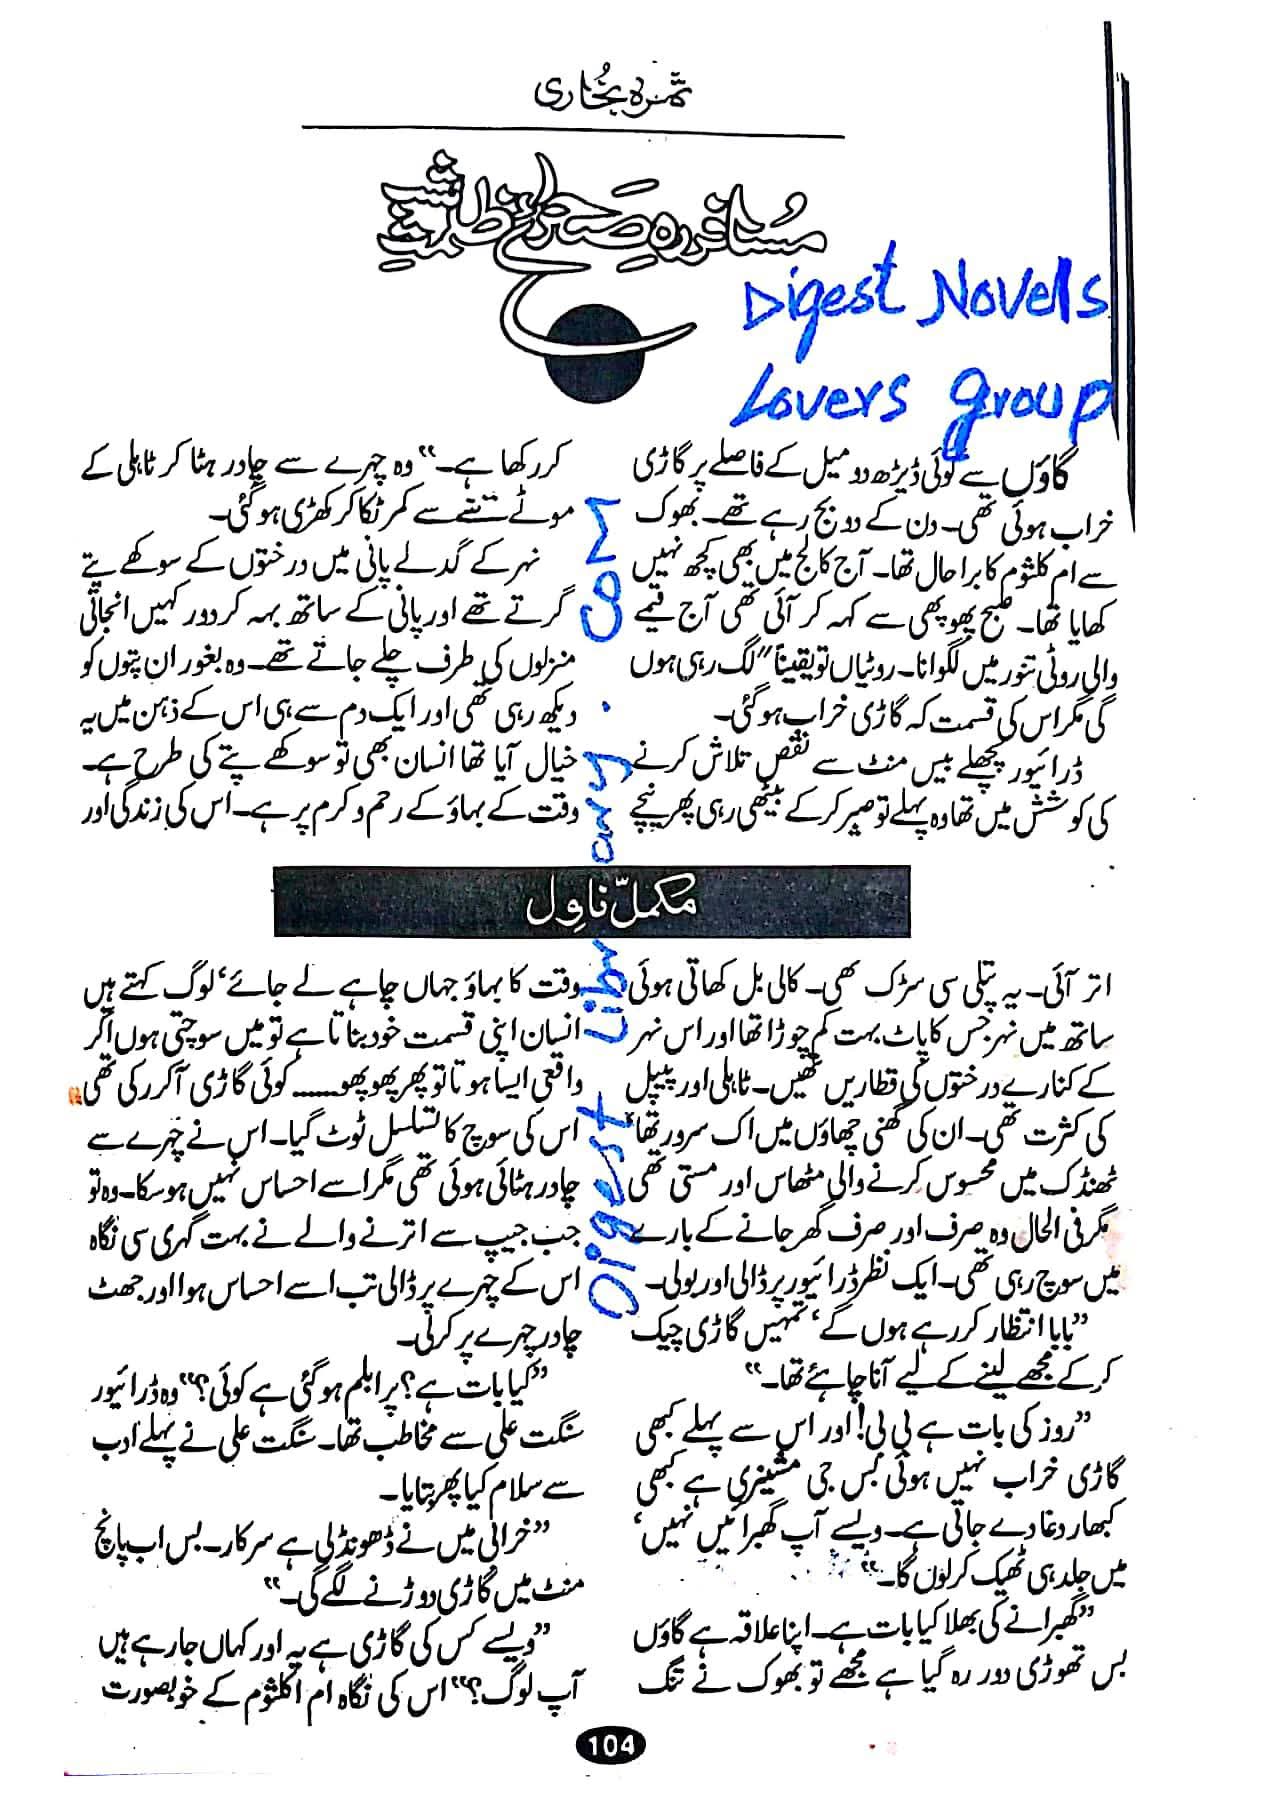 ثمرہ بخاری
مسافر رہ صحرائے ظلمتِ شب
Digest Novels
Lovers group
گاؤں سے کوئی ڈیڑھ دو میل کے فاصلے پر گاڑی
خراب ہوئی تھی۔ دن کے دو بج رہے تھے۔ بھوک
سے ام کلثوم کا برا حال تھا۔ آج کالج میں بھی کچھ نہیں
کھایا تھا۔ صبح پھوپھی سے کہہ کر آئی تھی آج قیمے
والی روٹی تنور میں لگوانا۔ روٹیاں تو یقیناً" لگ رہی ہوں
گی مگر اس کی قسمت کہ گاڑی خراب ہو گئی۔
ڈرائیور پچھلے بیس منٹ سے نقص تلاش کرنے
کی کوشش میں تھا وہ پہلے تو صبر کر کے بیٹھی رہی پھر نیچے
کر رکھا ہے۔" وہ چہرے سے چادر ہٹا کر ٹاہلی کے
موٹے تنے سے کمر ٹکا کر کھڑی ہو گئی۔
نہر کے گدلے پانی میں درختوں کے سوکھے پتے
گرتے تھے اور پانی کے ساتھ بہہ کر دور کہیں انجانی
منزلوں کی طرف چلے جاتے تھے۔ وہ بغور ان پتوں کو
دیکھ رہی تھی اور ایک دم سے ہی اس کے ذہن میں یہ
خیال آیا تھا انسان بھی تو سوکھے پتے کی طرح ہے۔
وقت کے بہاؤ کے رحم و کرم پر ہے۔ اس کی زندگی اور
مکمل ناول
اتر آئی۔ یہ پتلی سی سڑک تھی۔ کالی بل کھاتی ہوئی
ساتھ میں نہر جس کا پاٹ بہت کم چوڑا تھا اور اس نہر
کے کنارے درختوں کی قطاریں تھیں۔ ٹاہلی اور پیپل
کی کثرت تھی۔ ان کی گھنی چھاؤں میں اک سرور تھا'
ٹھنڈک میں محسوس کرنے والی مٹھاس اور مستی تھی
مگر فی الحال وہ صرف اور صرف گھر جانے کے بارے
میں سوچ رہی تھی۔ ایک نظر ڈرائیور پر ڈالی اور بولی۔
"بابا انتظار کر رہے ہوں گے' تمہیں گاڑی چیک
کر کے مجھے لینے کے لیے آنا چاہئے تھا۔"
"روز کی بات ہے بی بی! اور اس سے پہلے کبھی
گاڑی خراب نہیں ہوئی بس جی مشینری ہے کبھی
کبھار دغا دے جاتی ہے۔ ویسے آپ گھبرائیں نہیں'
میں جلد ہی ٹھیک کر لوں گا۔"
"گھبرانے کی بھلا کیا بات ہے۔ اپنا علاقہ ہے گاؤں
بس تھوڑی دور رہ گیا ہے مجھے تو بھوک نے تنگ
وقت کا بہاؤ جہاں چاہے لے جائے' لوگ کہتے ہیں
انسان اپنی قسمت خود بناتا ہے تو میں سوچتی ہوں اگر
واقعی ایسا ہوتا تو پھر پھوپھو...... کوئی گاڑی آ کر رکی تھی
اس کی سوچ کا تسلسل ٹوٹ گیا۔ اس نے چہرے سے
چادر ہٹائی ہوئی تھی مگر اسے احساس نہیں ہو سکا۔ وہ تو
جب جیپ سے اترنے والے نے بہت گہری سی نگاہ
اس کے چہرے پر ڈالی تب اسے احساس ہوا اور جھٹ
چادر چہرے پر کر لی۔
"کیا بات ہے؟ پرابلم ہو گئی ہے کوئی؟" وہ ڈرائیور
سنگت علی سے مخاطب تھا۔ سنگت علی نے پہلے ادب
سے سلام کیا پھر بتایا۔
"خرابی میں نے ڈھونڈ لی ہے سرکار۔ بس اب پانچ
منٹ میں گاڑی دوڑنے لگے گی۔"
"ویسے کس کی گاڑی ہے یہ اور کہاں جا رہے ہیں
آپ لوگ؟" اس کی نگاہ ام کلثوم کے خوبصورت
Digest Library.com
104